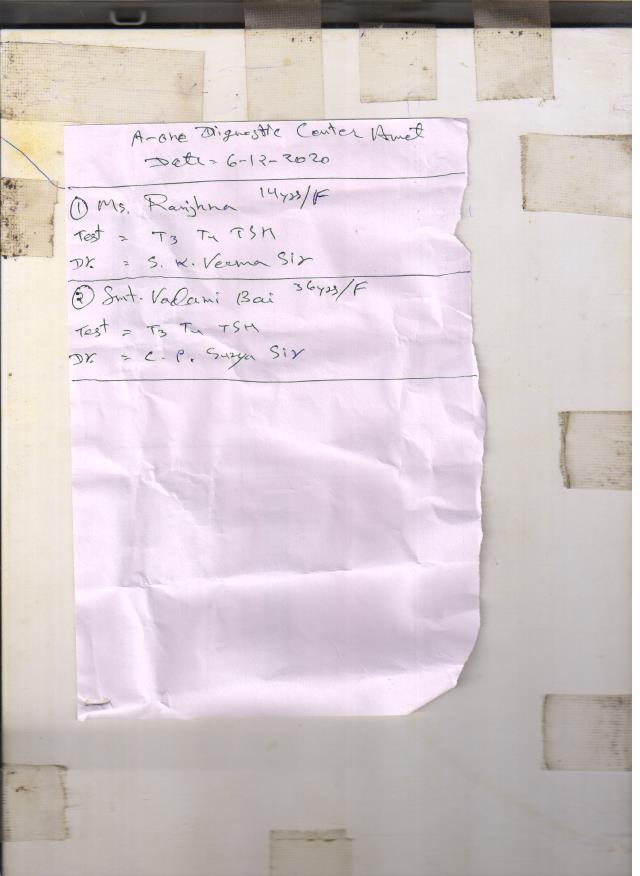 A-one Diagnostic Center Amet
Date = 6-12-2020
① Ms. Ranjhna 14yrs/F
Test = T3 T4 TSH
Dr. = S. K. Verma Sir
② Smt. Vadami Bai 36yrs/F
Test = T3 T4 TSH
Dr. = C. P. Surya Sir